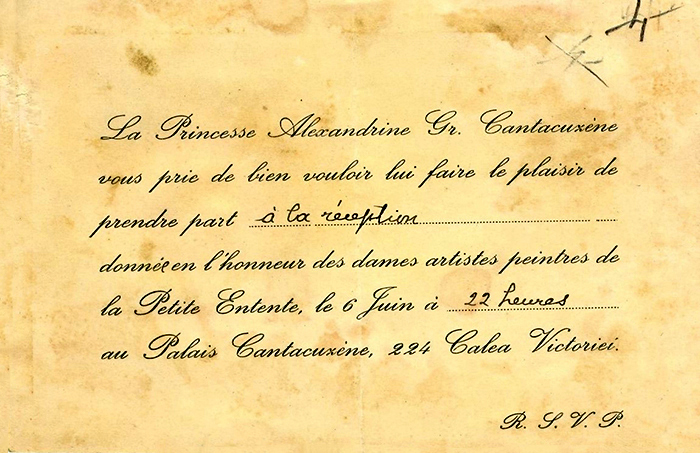 La Princesse Alexandrine Gr. Cantacuzène
vous prie de bien vouloir lui faire le plaisir de
prendre part à la réception
donnée en l'honneur des dames artistes peintres de
la Petite Entente, le 6 Juin à 22 heures
au Palais Cantacuzène, 224 Calea Victoriei.
R. S. V. P.